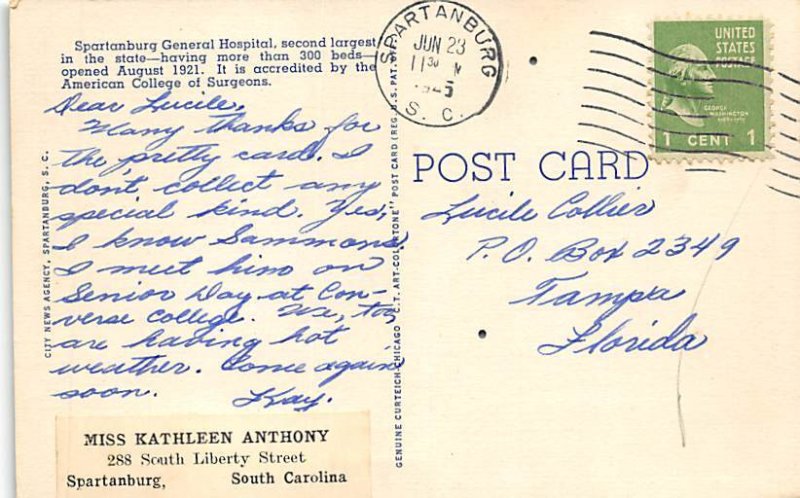 Spartanburg General Hospital, second largest
in the state—having more than 300 beds—
opened August 1921. It is accredited by the
American College of Surgeons.
Dear Lucile,
Many thanks for
the pretty card. I
don't collect any
special kind. Yes,
I know Sammons
I meet him on
Senior Day at Con-
verse College. We, too,
are having hot
weather. Come again
soon. Kay.
MISS KATHLEEN ANTHONY
288 South Liberty Street
Spartanburg, South Carolina
CITY NEWS AGENCY, SPARTANBURG, S. C.
GENUINE CURTEICH-CHICAGO "C.T. ART-COLORTONE" POST CARD (REG. U.S. PAT. OFF.)
SPARTANBURG
JUN 23
1130 M
1945
S. C.
UNITED
STATES
POSTAGE
GEORGE
WASHINGTON
1 CENT 1
POST CARD
Lucile Collier
P. O. Box 2349
Tampa
Florida